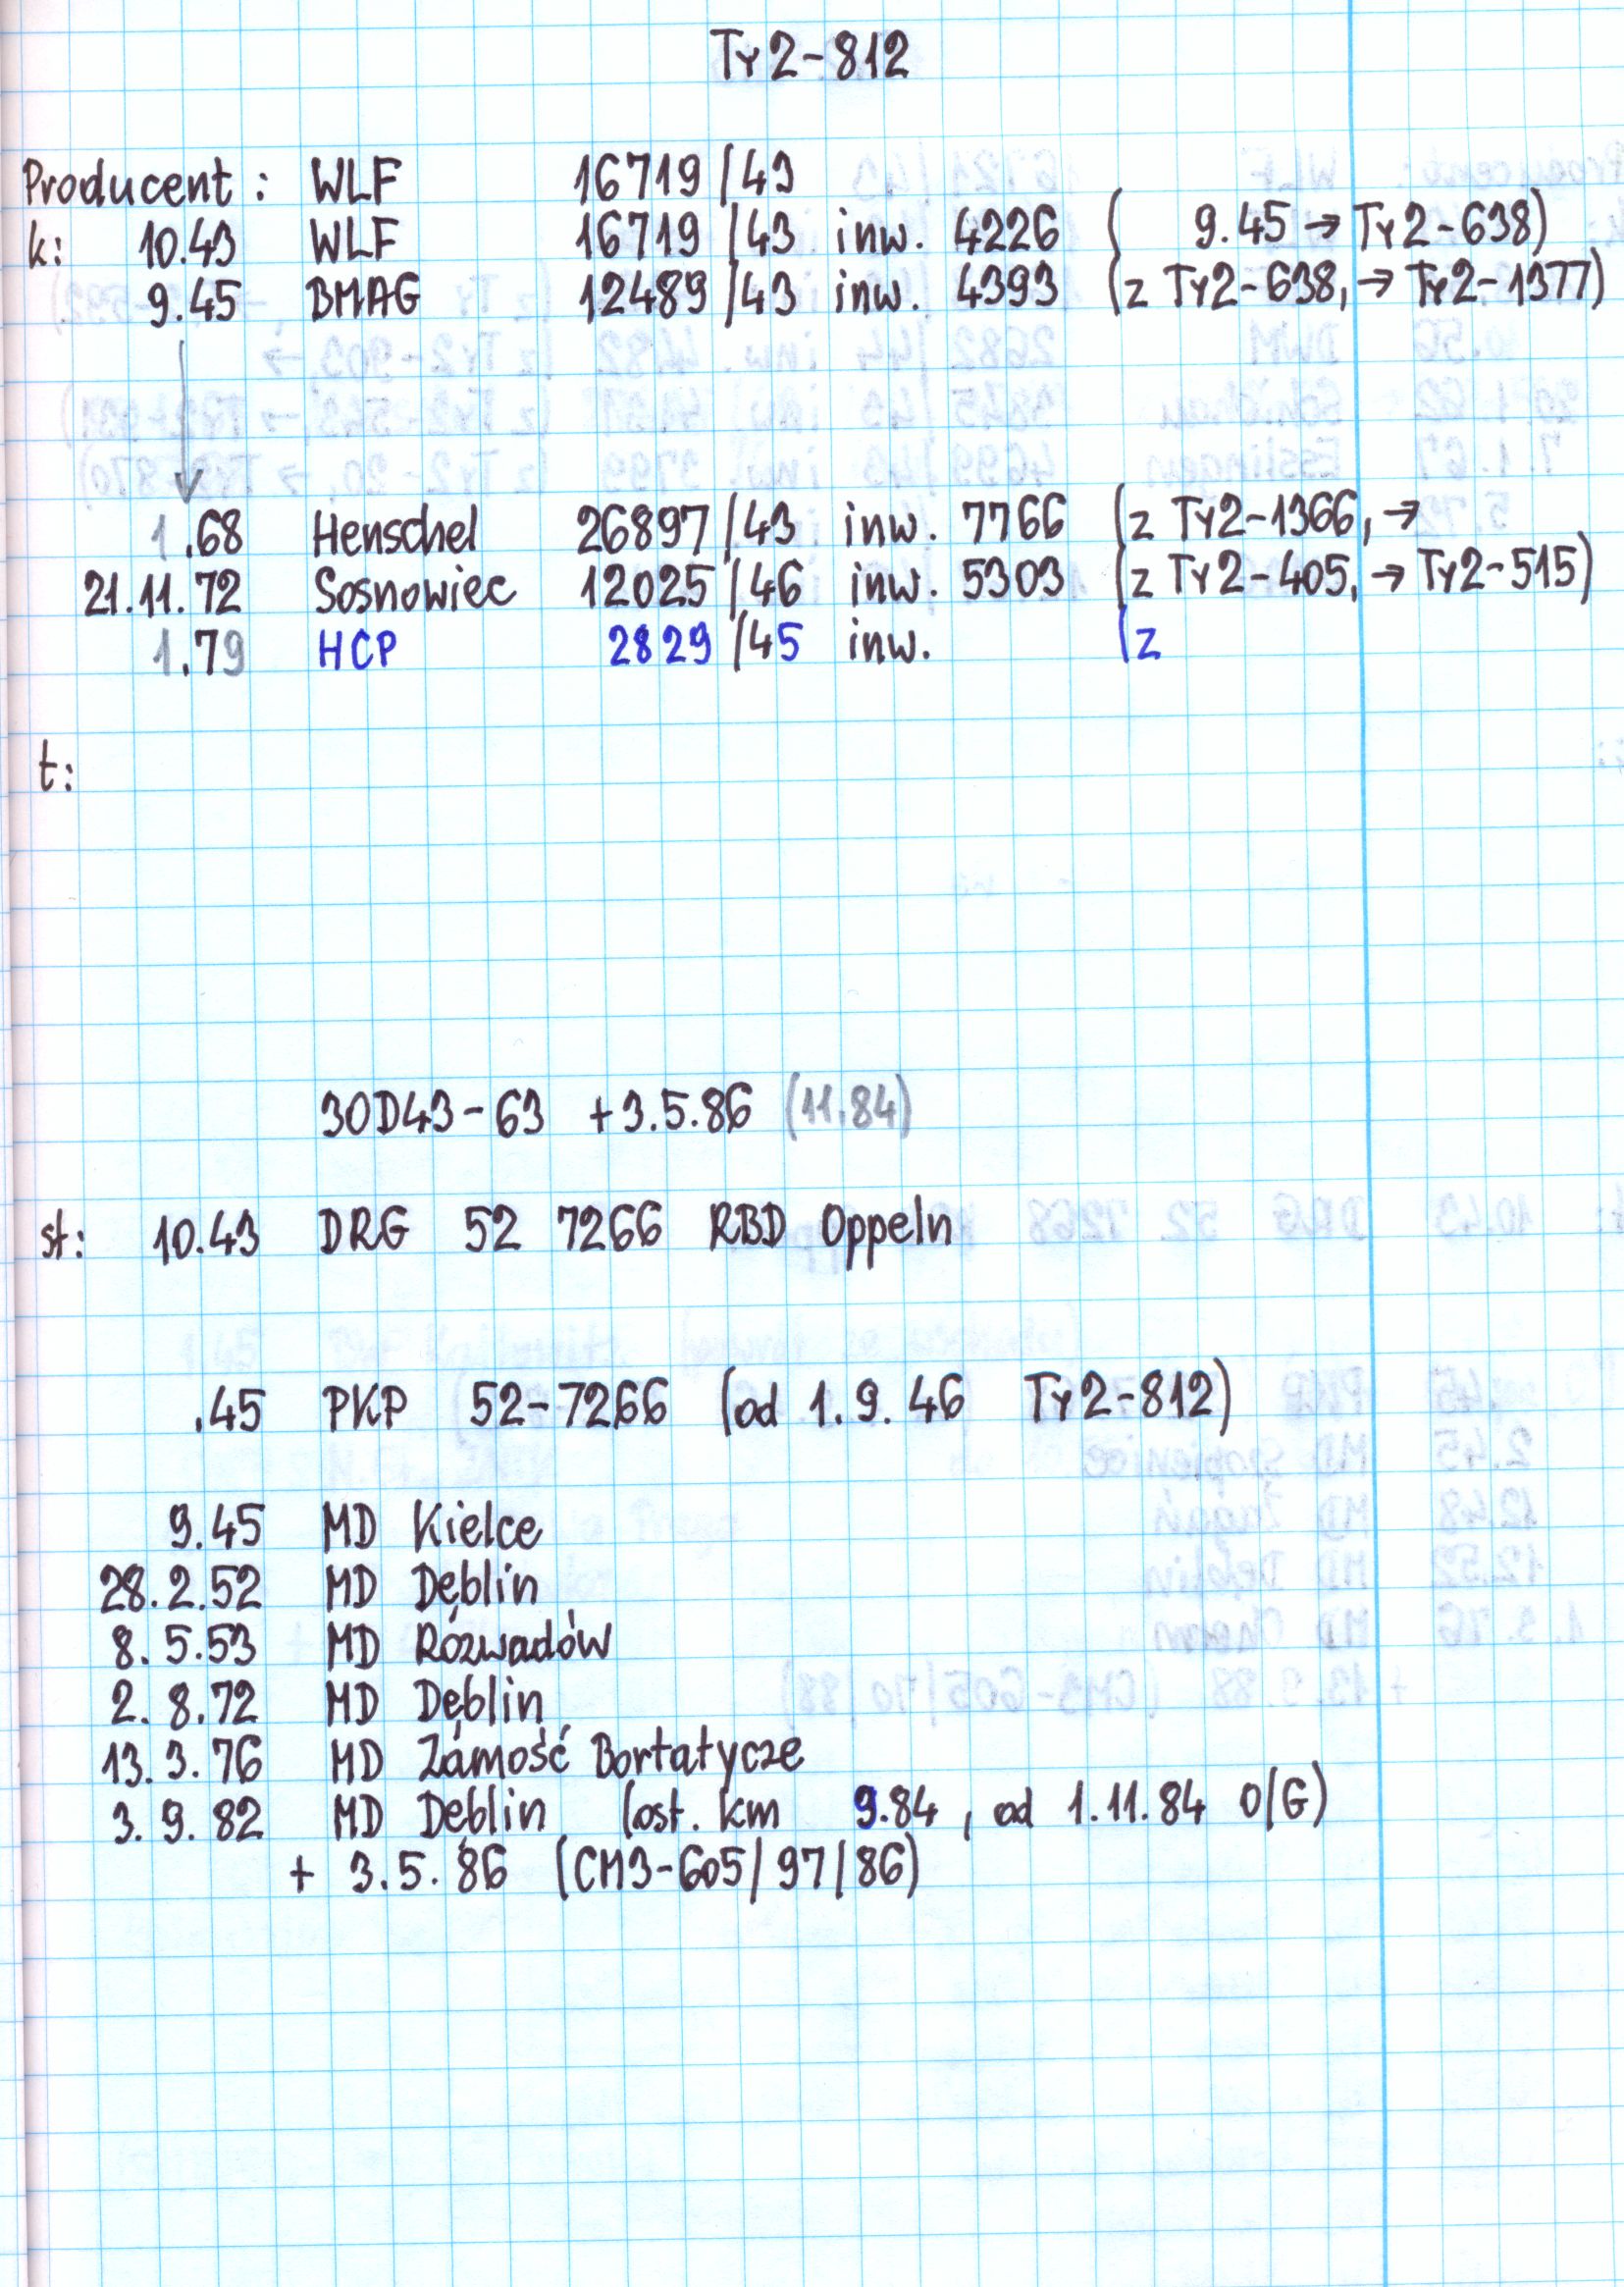 Ty2-812
Producent: WLF 16719/43
k: 10.43 WLF 16719/43 inw. 4226 ( 9.45 → Ty2-638)
9.45 BMAG 12489/43 inw. 4393 (z Ty2-638, → Ty2-1377)
1.68 Henschel 26897/43 inw. 7766 (z Ty2-1366, →
21.11.72 Sosnowiec 12025/46 inw. 5303 (z Ty2-405, → Ty2-515)
1.79 HCP 2829/45 inw. (z
t:
30D43-63 +3.5.86 (11.84)
st: 10.43 DRG 52 7266 RBD Oppeln
.45 PKP 52-7266 (od 1.9.46 Ty2-812)
9.45 MD Kielce
28.2.52 MD Dęblin
8.5.53 MD Rozwadów
2.8.72 MD Dęblin
13.3.76 MD Zamość Bortatycze
3.9.82 MD Dęblin (ost. km 9.84, od 1.11.84 O/G)
+ 3.5.86 (CM3-605/97/86)